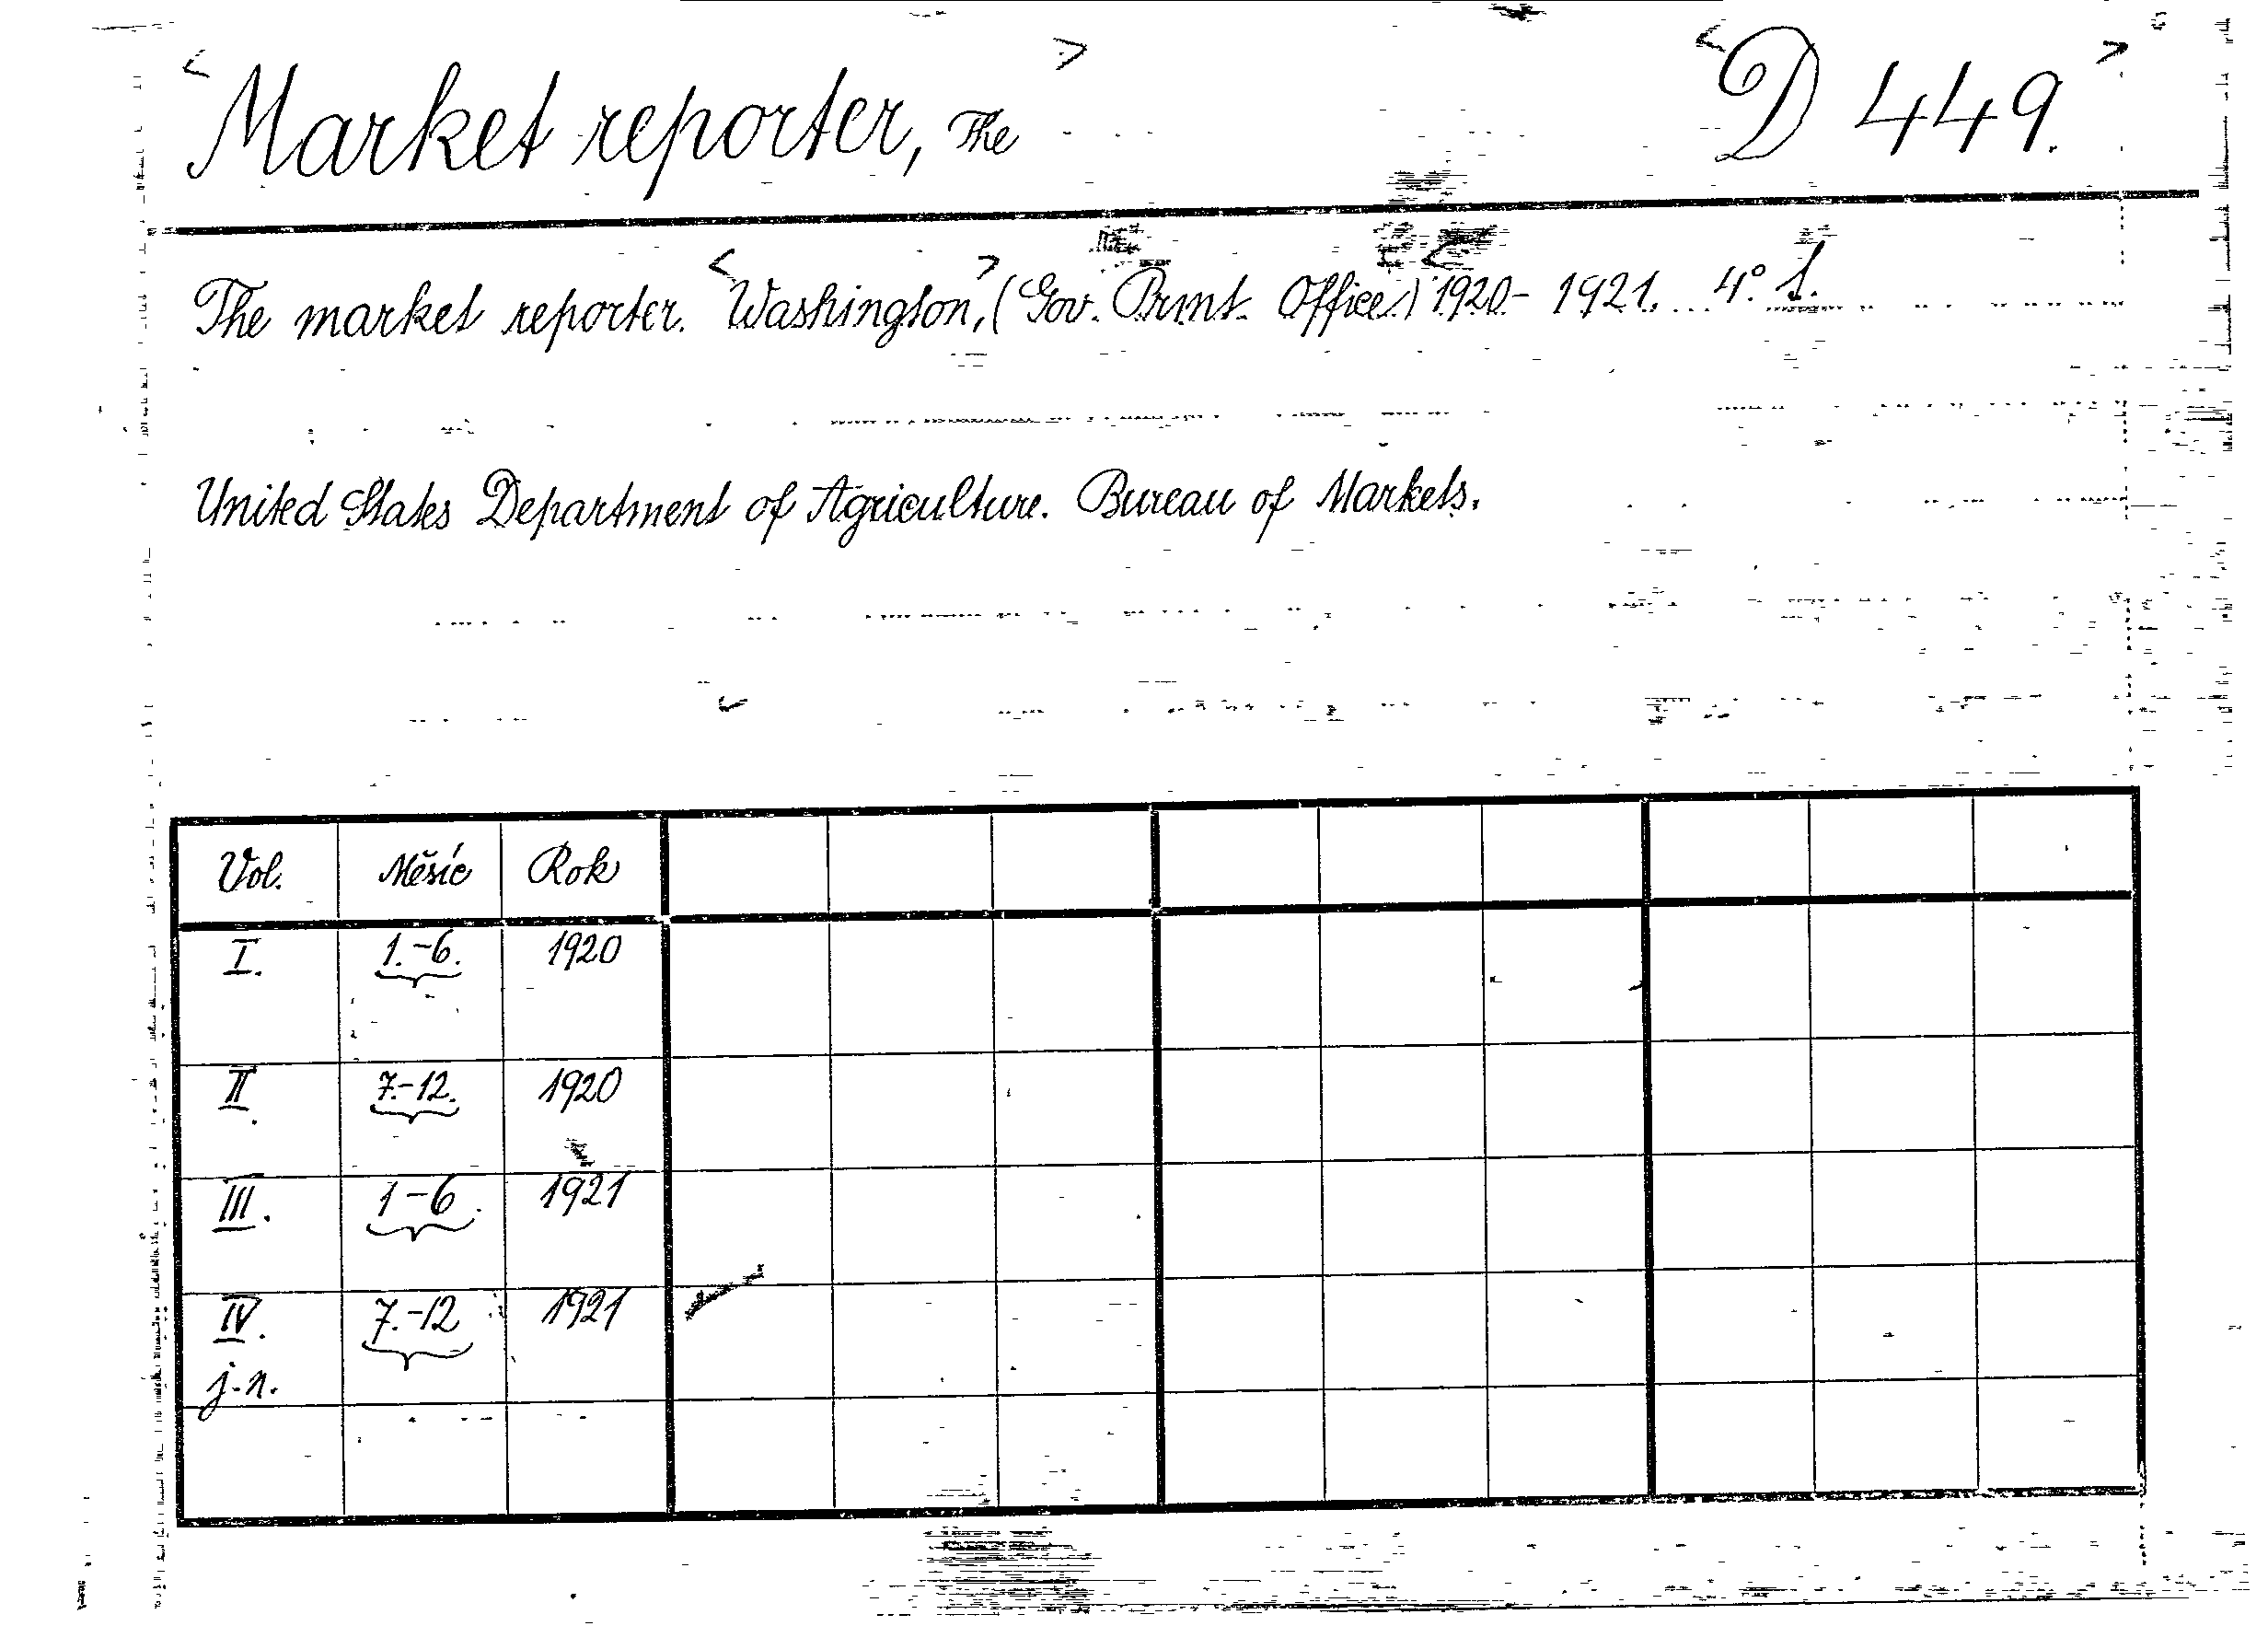 <Market reporter, The> <D 449.>
The market reporter. <Washington,> (Gov. Print. Office.) 1920- 1921. 4°.
United States Department of Agriculture. Bureau of Markets.
Vol. Měsíc Rok
I. 1.-6. 1920
II. 7.-12. 1920
III. 1-6. 1921
IV. 7.-12 1921
j.n.